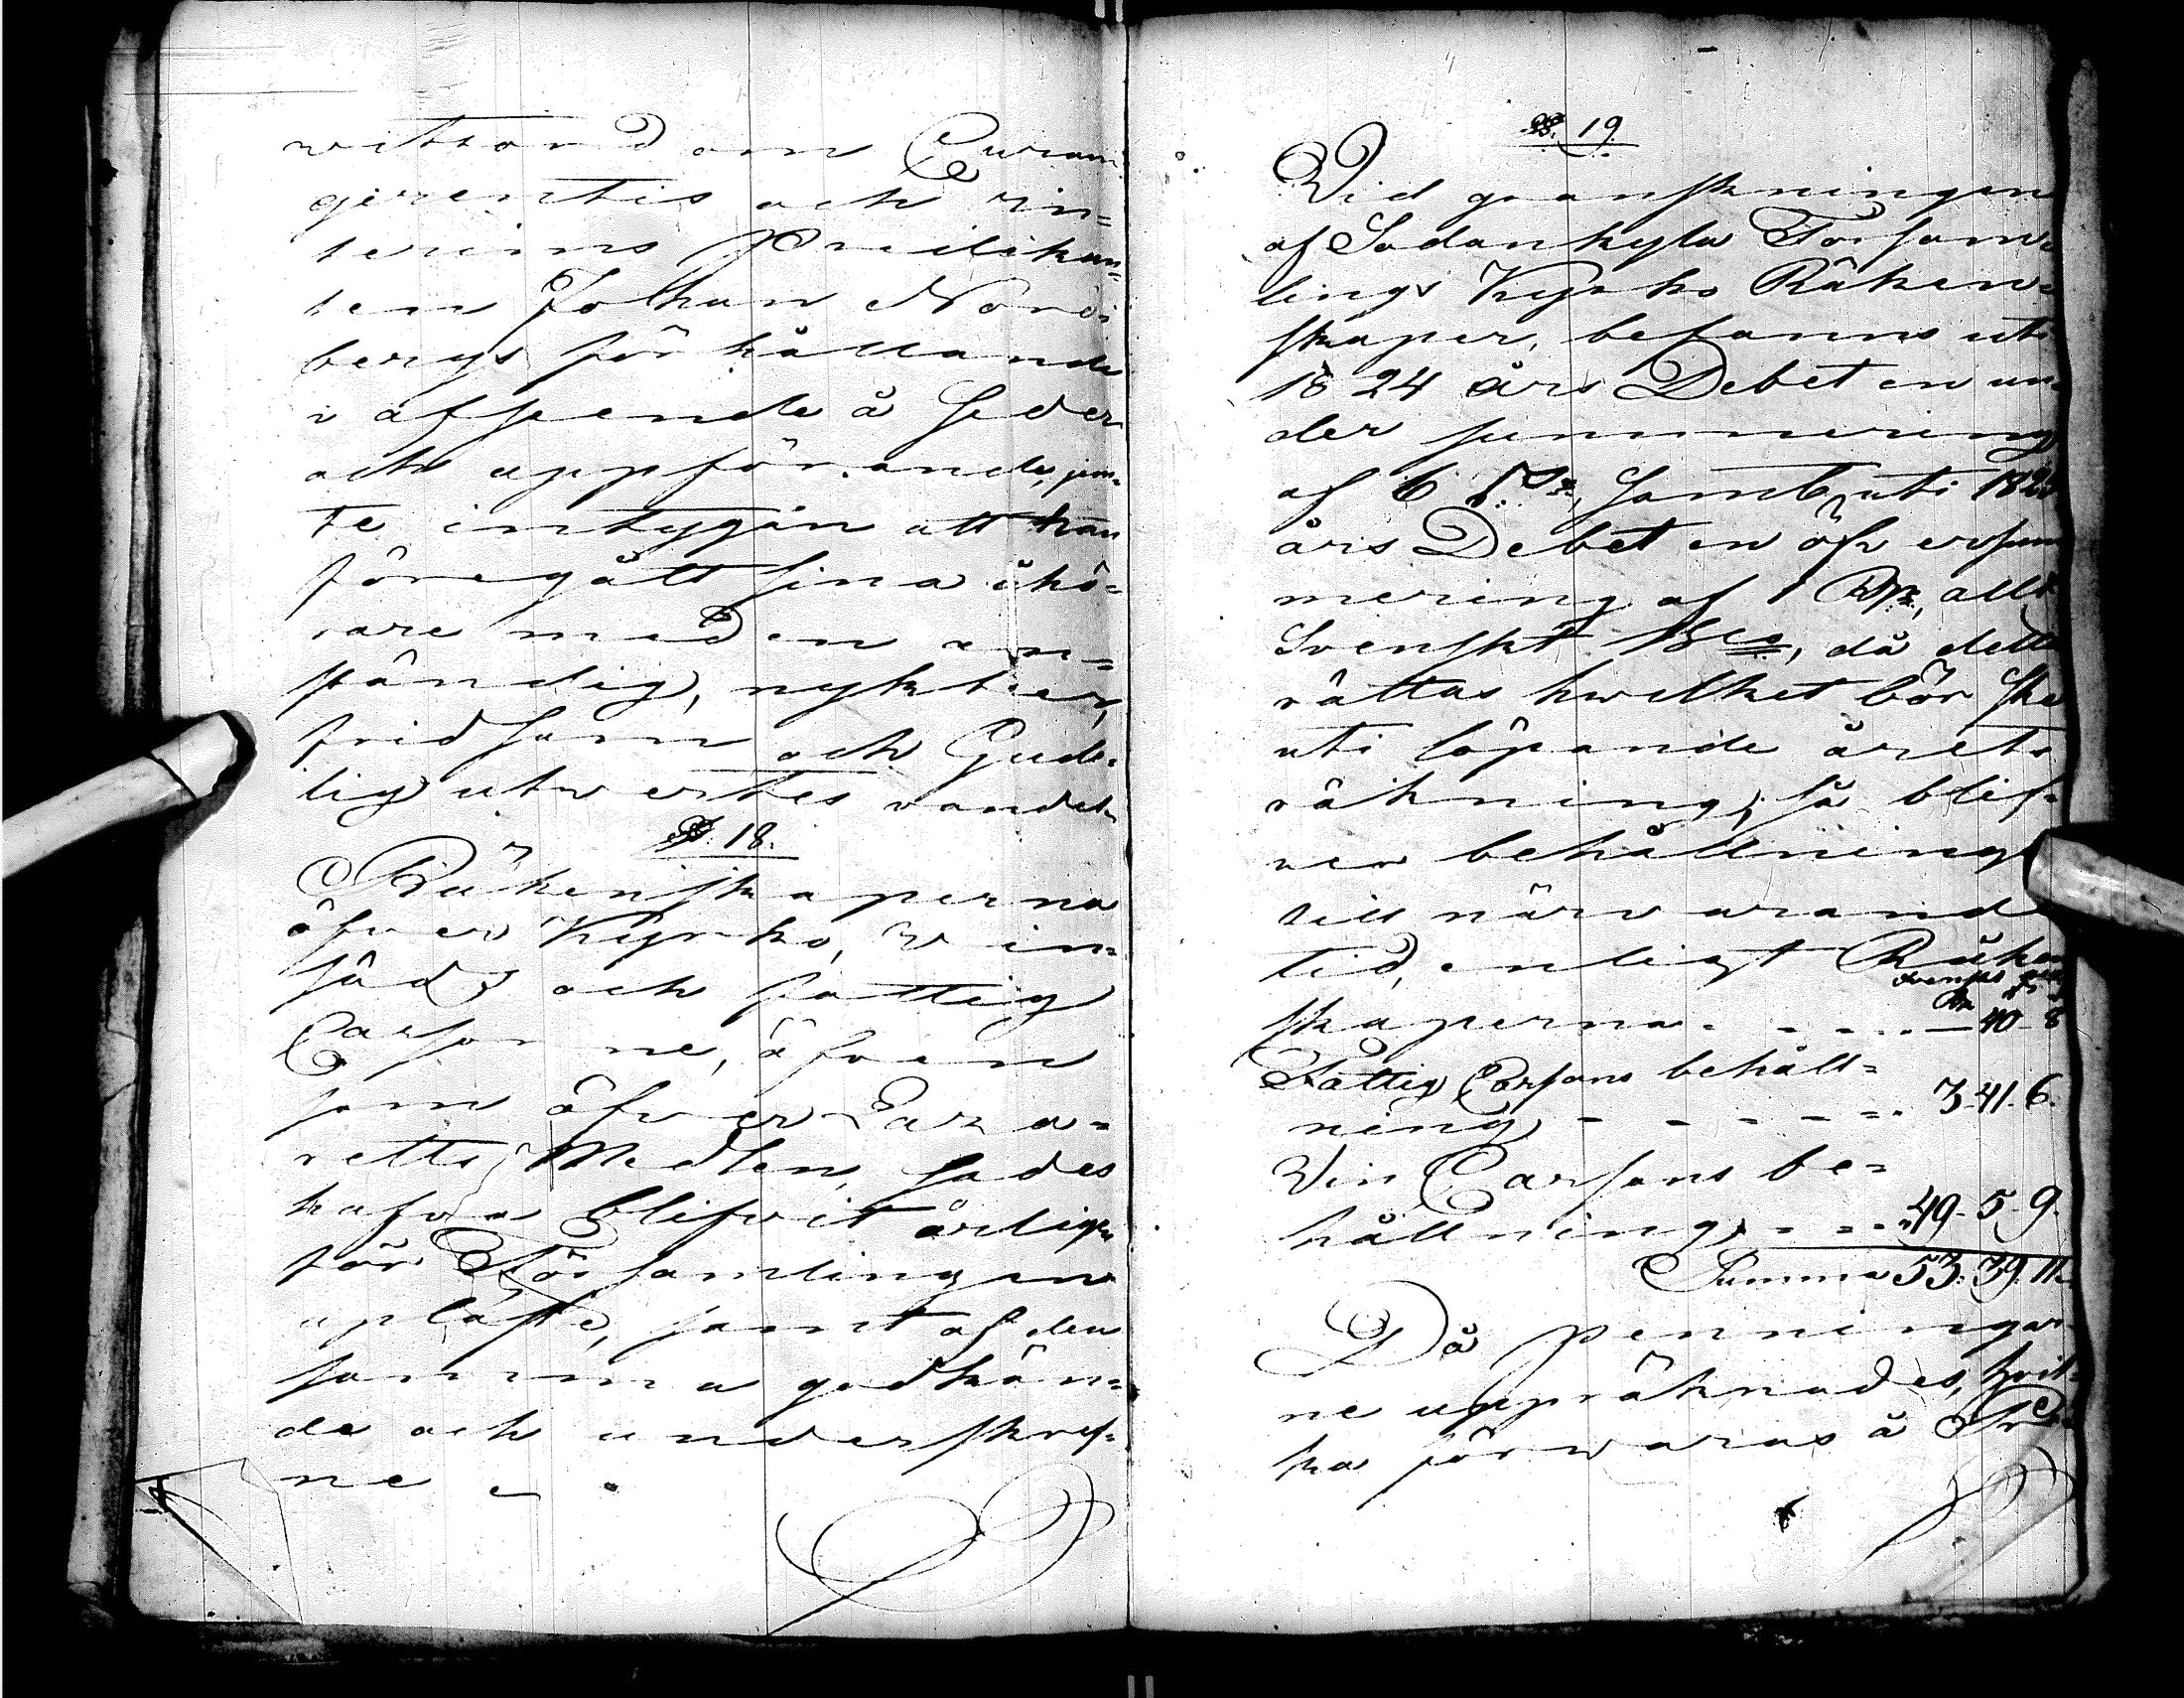 witsord om Curam
gerentis och in=
terims Predikan=
ten Johan Nord=
bergs förhållande
i afseende å Seder
och uppförande, jem=
te intygan att han
föregått sina åhö=
rare med en an=
ständig, nykter,
fridsam och Gude=
lig utwertes vandel
§. 18.
Räkenskaperna
öfver Kyrko, Win
säd, och fattig
Cassorne, äfven
som öfver Laza=
retts Medlen, sades
hafva blifvit årligen
för Församlingen
upläste, samt af den
samma godkän=
de och underskref=
ne.
§. 19.
Vid granskningen
af Sodankyla Församb=
lings Kyrko Räken=
skaper, befanns uti
1824 års Debet en un=
der summering
af 6 , samt uti
års Debet en öfversum
mering af 1 , allt
Svenskt , då detta
rättas hwilket bör ske
uti löpande årets
räkning, så blif=
ver behållning
till närwarande
tid, enligt Räken
Svenskt
skaperna - - - - - 40 - 8
Fattig Cassans behåll=
ning - - - - - - 3. 41. 6.
Vin Cassans be=
hållning - - - 49. 5. 9.
Summa 53. 39. 11.
Då penningar
ne uppräknades, hvil=
ka förwaras å